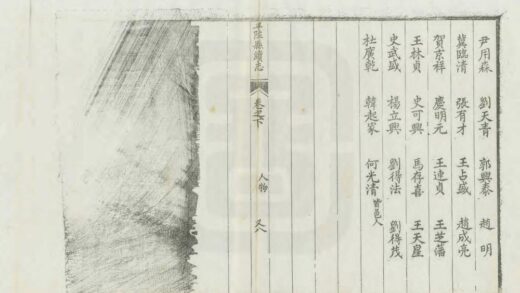 尹用霖 劉天青 郭興泰 趙明
冀臨清 張有才 王占盛 趙成亮
賀京祥 慶明元 王連貞 王芝藩
王林貞 史可興 馬存喜 王天星
史武盛 楊立興 劉得法 劉得茂
杜廣乾 韓起家 何光清 皆邑人
平陸縣續志 卷之下 人物 又八